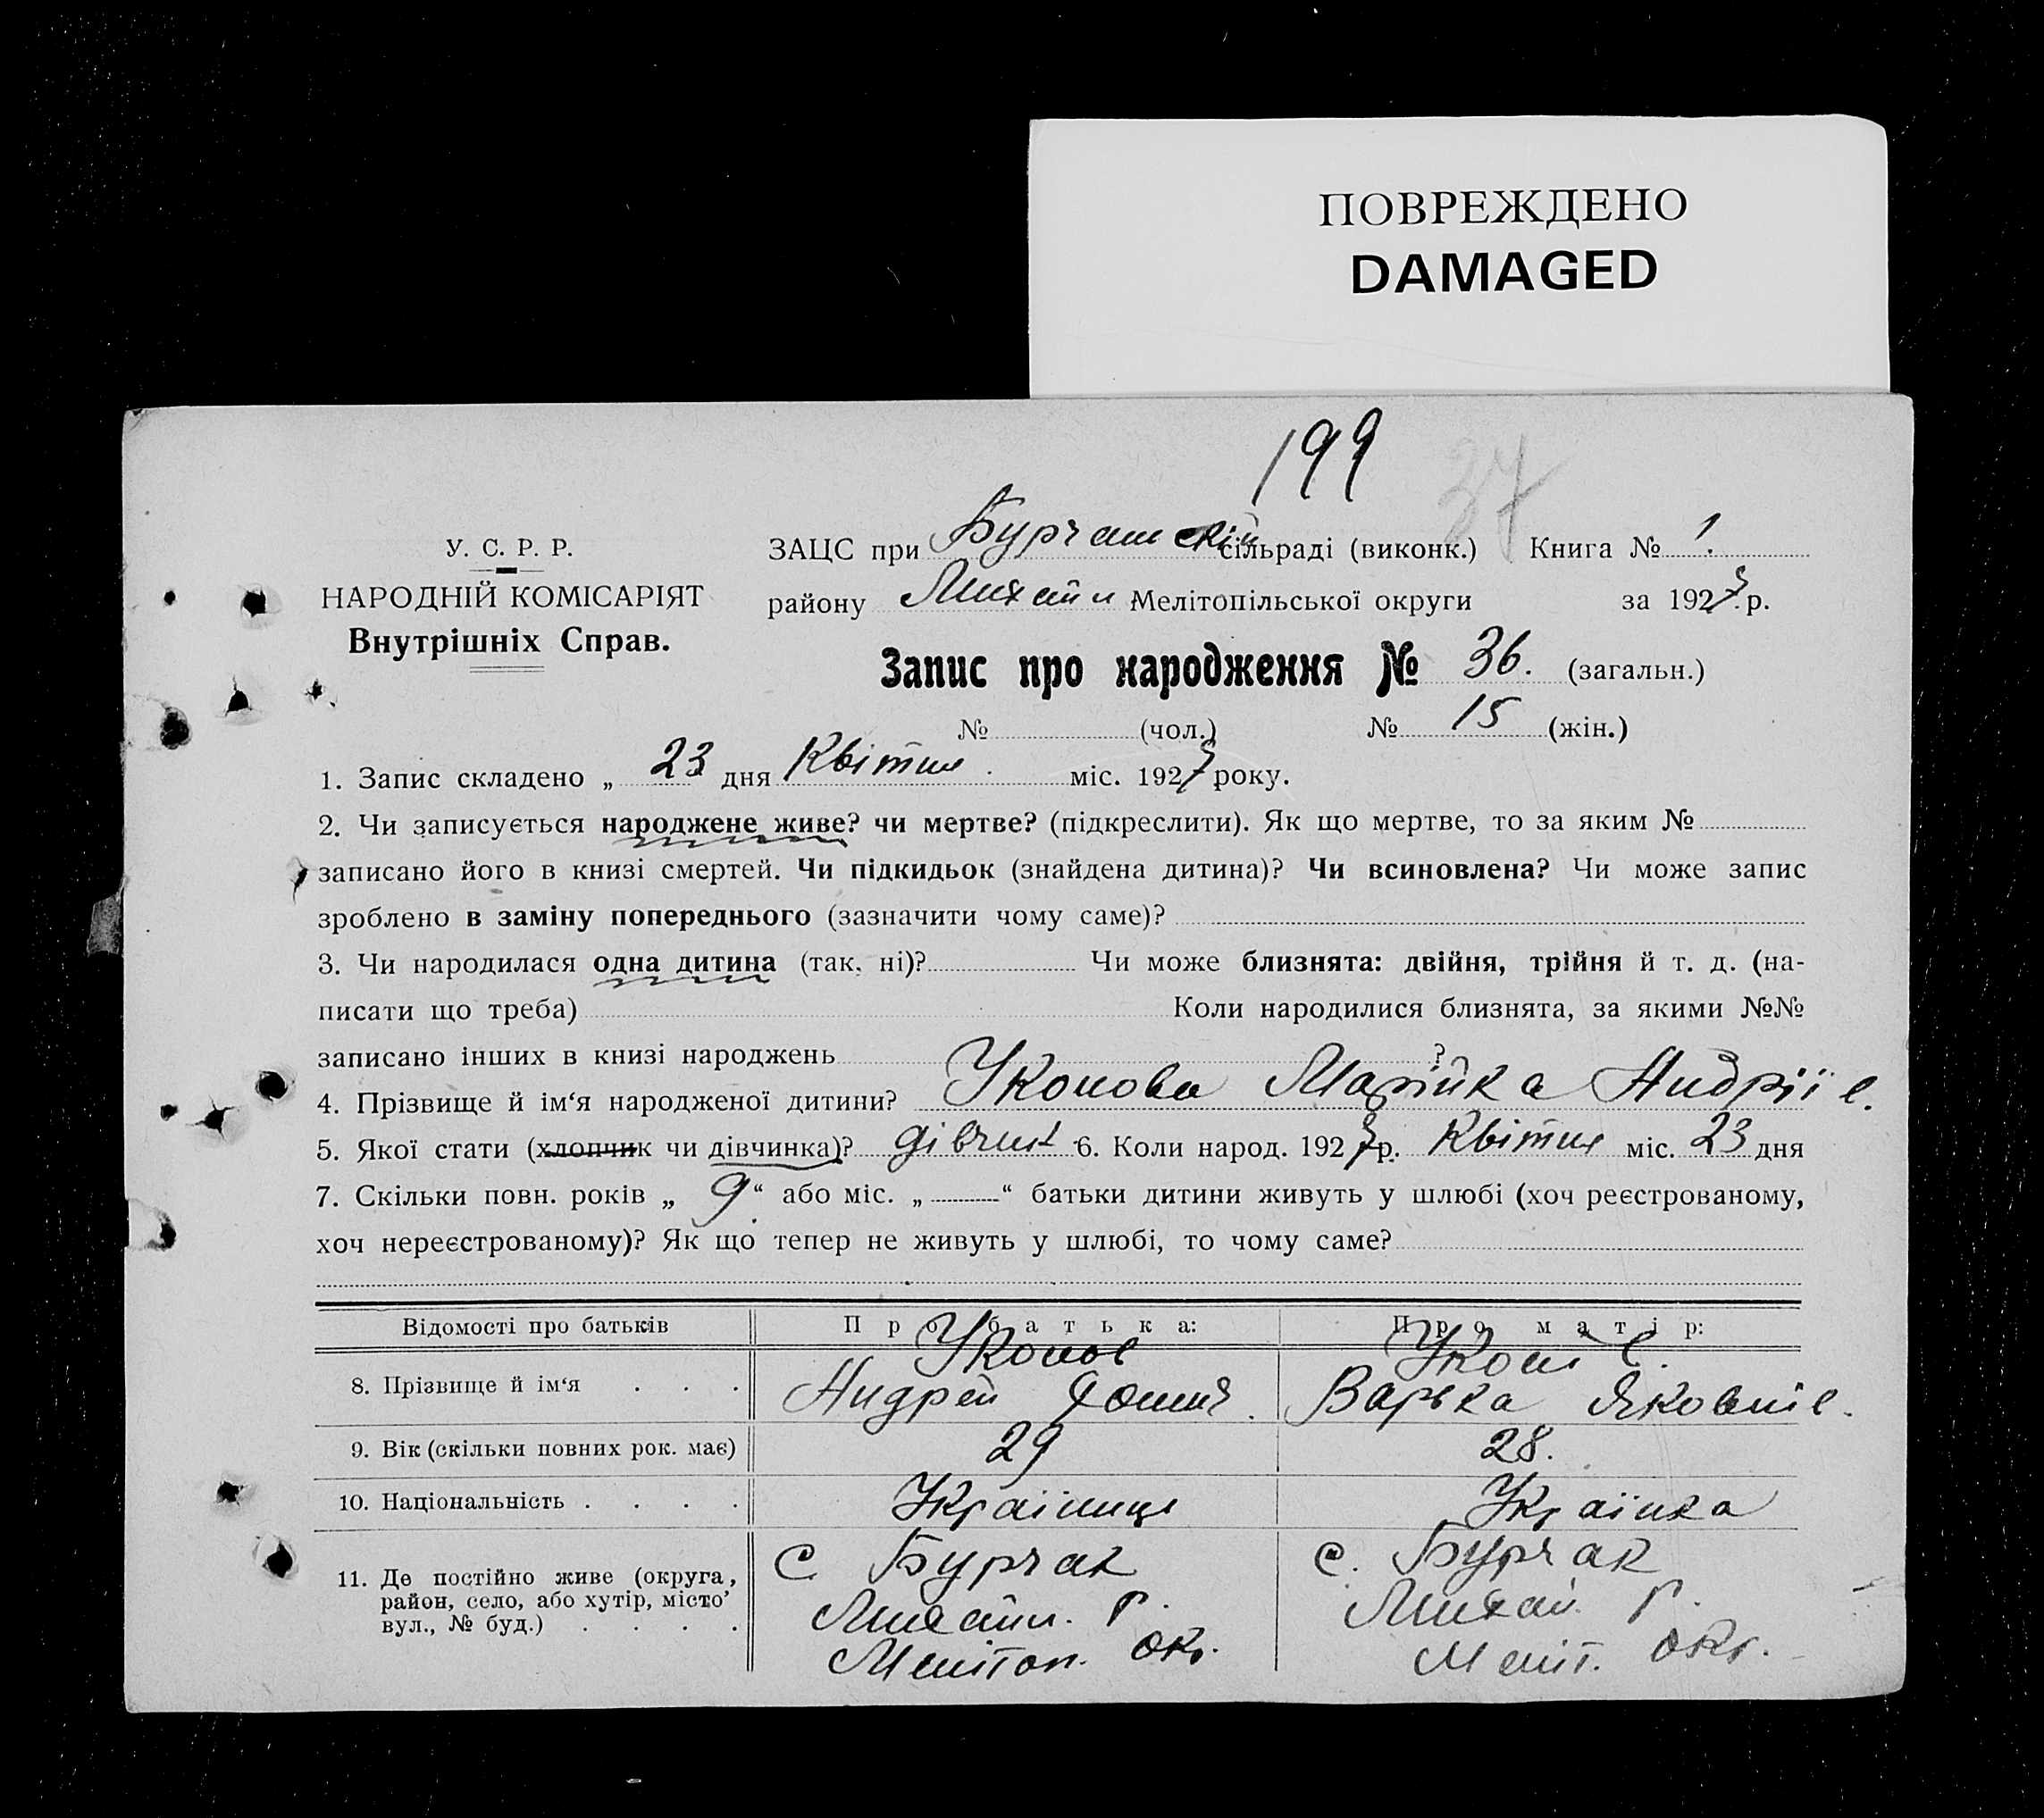 ПОВРЕЖДЕНО
DAMAGED
199
37
У. С. Р. Р.
НАРОДНІЙ КОМІСАРІЯТ
Внутрішніх Справ.
ЗАЦС при Бурчатській сільраді (виконк.) Книга № 1.
району Михайл Мелітопільської округи за 1927 р.
Запис про народження № 36. (загальн.)
№ (чол.) № 15 (жін.)
1. Запис складено „ 23 дня Квітня міс. 1927 року.
2. Чи записується народжене живе? чи мертве? (підкреслити). Як що мертве, то за яким №
записано його в книзі смертей. Чи підкидьок (знайдена дитина)? Чи всиновлена? Чи може запис
зроблено в заміну попереднього (зазначити чому саме)?
3. Чи народилася одна дитина (так, ні)? Чи може близнята: двійня, трійня й т. д. (на-
писати що треба) Коли народилися близнята, за якими №№
записано інших в книзі народжень ?
4. Прізвище й ім‘я народженої дитини? Уконова Марійка Андріїв.
5. Якої стати (хлопчик чи дівчинка)? дівчин 6. Коли народ. 1927 р. Квітня міс. 23 дня
7. Скільки повн. років „ 9 “ або міс. „ “ батьки дитини живуть у шлюбі (хоч реєстрованому,
хоч нереєстрованому)? Як що тепер не живуть у шлюбі, то чому саме?
Відомості про батьків Про батька: Про матір:
8. Прізвище й ім‘я . . . Уконов Андрей Фомич. Укон Варька Яковлів.
9. Вік (скільки повних рок. має) 29 28.
10. Національність . . . . Українець Українка
11. Де постійно живе (округа, район, село, або хутір, місто, вул., № буд.) . . . . С. Бурчак Михайл. р. МеліTоп. окр. С. Бурчак Михай. р. Меліт. окр.